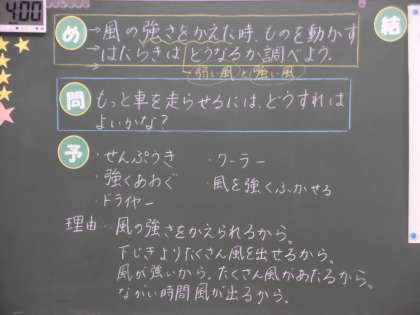 4:00
め
結
→風の強さをかえた時、ものを動かす
→はたらきはどうなるか調べよう。
→弱い風と強い風
問
もっと車を走らせるには、どうすれば
よいかな？
予
・せんぷうき ・クーラー
・強くあおぐ ・風を強くふかせる
・ドライヤー
理由…風の強さをかえられるから。
下じきよりたくさん風を出せるから。
風が強いから。たくさん風があたるから。
ながい時間風が出るから。